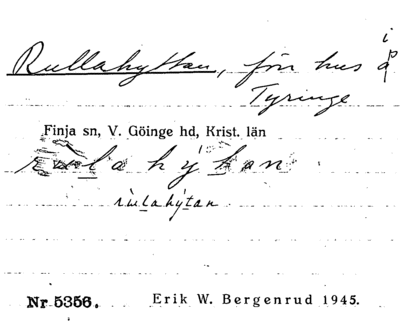 Rullahyttan, förr hus på
i
Tyringe
Finja sn, V. Göinge hd, Krist. län
rùlahýtan
rùlahýtan
Nr 5356. Erik W. Bergenrud 1945.